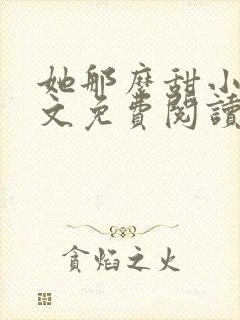 她那麼甜小
文免費閱讀
貪焰之火